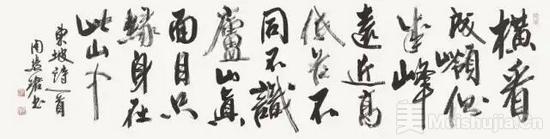 橫看
成嶺側
成峰
遠近高
低各不
同不識
廬山真
面目只
緣身在
此山中
東坡詩一首
周慧珺書
Meishujia.cn